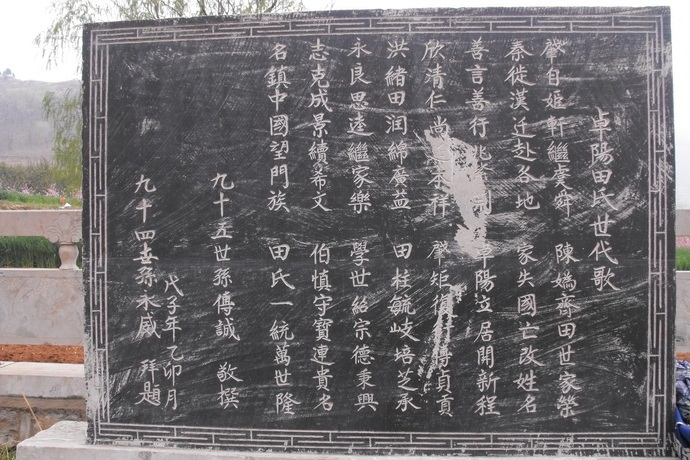 卓陽田氏世代歌
肇自姬軒繼虞舜 陳嬀齊田世家榮
秦徙漢迁赴各地 家失國亡改姓名
善言善行兆 陽立居開新程
欣清仁尚 祥 肇矩復 傳貞貢
洪緒田润綿廣益 田柱毓岐培芝承
永良思遠繼家樂 學世紹宗德秉興
志克成景續希文 伯慎宇寳連貴名
名鎮中國望門族 田氏一統萬世隆
九十五世孫傳誠 敬撰
戊子年乙卯月
九十四世孫永威 拜題